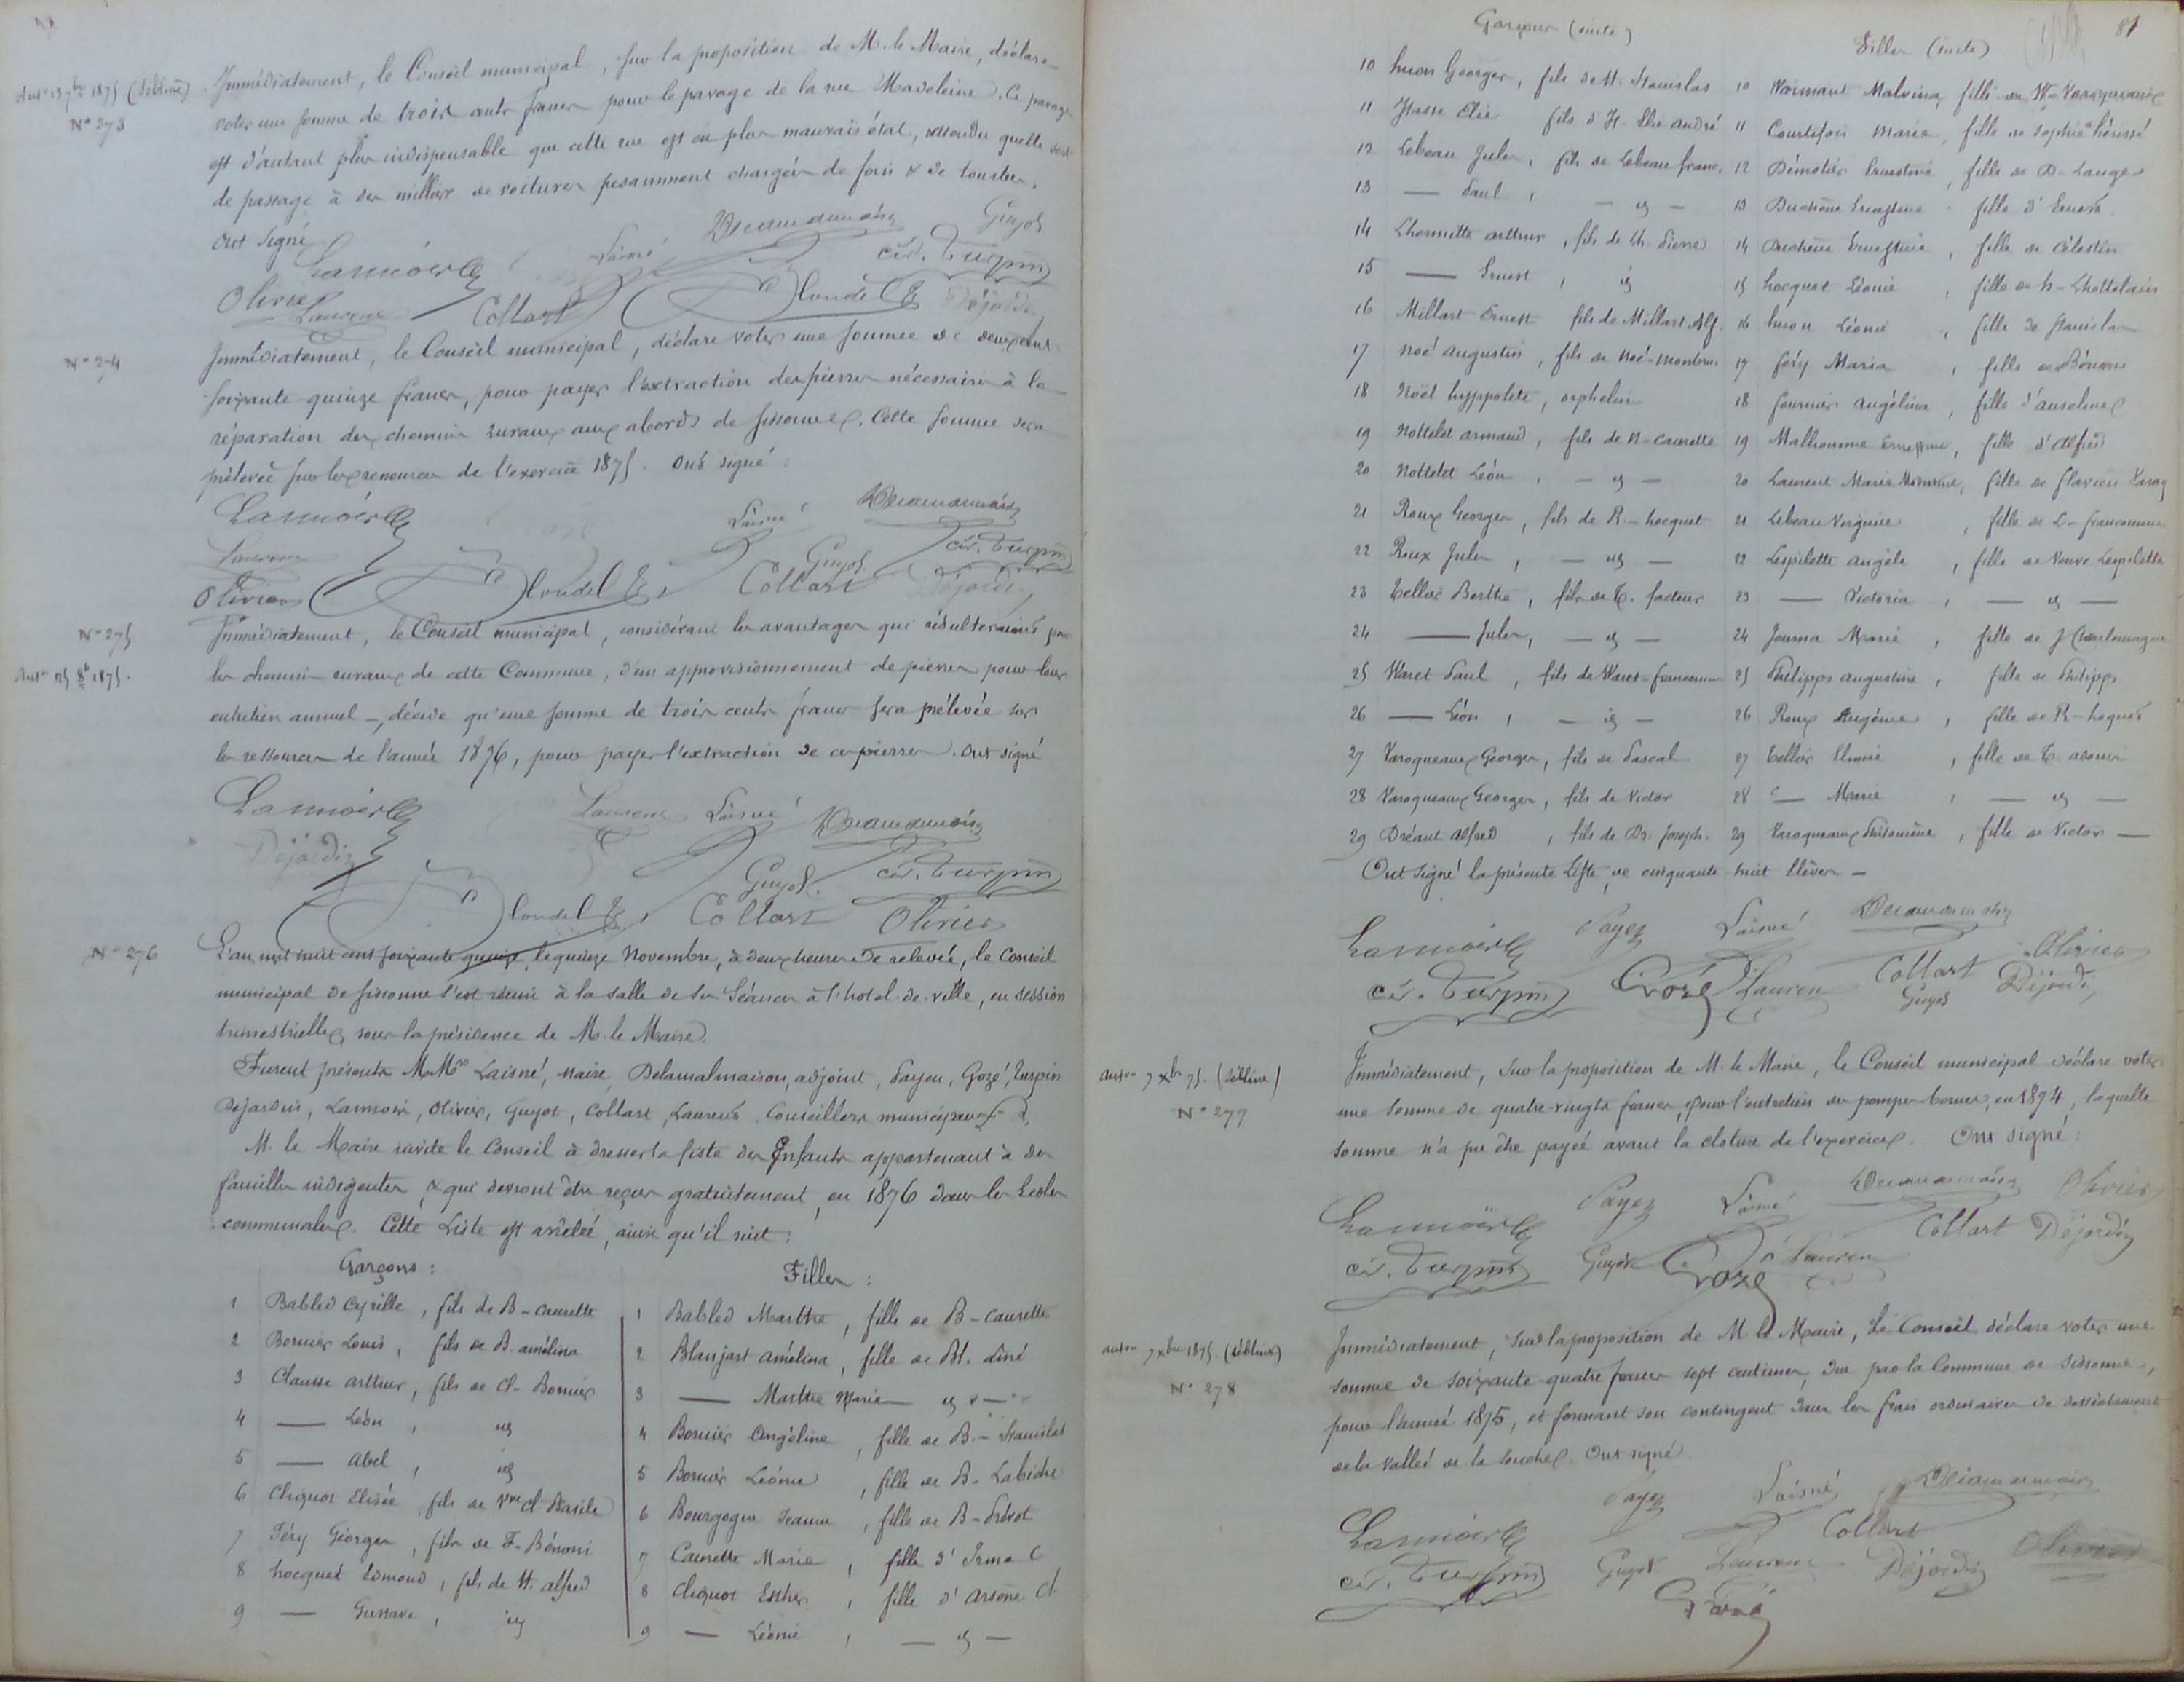 Immédiatement, le Conseil municipal, sur la proposition de M. le Maire, déclare
Auton 13 7bre 1875 (débline)
N° 273
voter une somme de trois cents francs pour le pavage de la rue Madeleine. Ce pavage
est d'autant plus indispensable que cette rue est en plus mauvais état, attendu quelle sert
de passage à des milliers de voitures pesamment chargées de foin & de tourbes.
Ont signé
Lannoir Laisné Delamalmaison Guyot
Olivier Laurent Collart Blondel cér. Turpin Déjardin
N° 274
Immédiatement, le Conseil municipal, déclare voter une somme de deux cent
soixante-quinze francs, pour payer l'extraction des pierres nécessaires à la
réparation des chemins ruraux aux abords de Sissonne. Cette somme sera
prélevée sur les ressources de l'exercice 1875. Ont signé :
Lannoir Laisné Delamalmaison
Laurent Guyot cér. Turpin
Olivier Blondel Collart Déjardin
N° 275
Immédiatement, le Conseil municipal, considérant les avantages qui résulteraient pour
Auton 25 8b 1875.
les chemins ruraux de cette Commune, d'un approvisionnement de pierres pour leur
entretien annuel –, décide qu'une somme de trois cents francs sera prélevée sur
les ressources de l'année 1876, pour payer l'extraction de ces pierres. Ont signé
Lannoir Laurent Laisné Delamalmaison
Déjardin Guyot. cér. Turpin
Blondel Collart Olivier
N° 276
L'an mil huit cent soixante quinze, le quinze Novembre, à deux heures de relevée, le Conseil
municipal de Sissonne s'est réuni à la salle de ses Séances à l'hotel-de-ville, en session
trimestrielle, sous la présidence de M. le Maire.
Furent présents MM. Laisné, maire, Delamalmaison, adjoint, Payen, Gozé, Turpin
Déjardin, Lannoir, Olivier, Guyot, Collart, Laurent, Conseillers municipaux
M. le Maire invite le Conseil à dresser la liste des Enfants appartenant à des
familles indigentes, & qui devront être reçus gratuitement, en 1876 dans les Ecoles
communales. Cette Liste est arrêtée, ainsi qu'il suit :
Garçons : Filles :
1 Babled Cyrille, fils de B-Caurette 1 Babled Marthe, fille de B-Caurette
2 Bornier Louis, fils de B. amélina 2 Blanjart Amélina, fille de Bl. diné
3 Clausse Arthur, fils de Cl-Bornier 3 — Marthe Marie — id —
4 — Léon, id 4 Bornier Angéline, fille de B-Stanislas
5 — Abel, id 5 Bornier Léonie, fille de B-Labiche
6 Cliquot Elisée, fils de Vve Cl. Basile 6 Bourgogne Jeanne, fille de B-Prévot
7 Féry Georges, fils de F-Bénoni 7 Caurette Marie, fille d'Irma C
8 hocquet Edmond, fils de H. alfred 8 Cliquot Esther, fille d'Arsène Cl
9 — Gustave, id 9 — Léonie, — id —
81
Garçons (suite) Filles (suite)
10 huon Georges, fils de H. Stanislas 10 Normant Malvina, fille de
11 Hasse Elie fils d'H-Elie André 11 Courtefois Marie, fille de Sophie hérissé
12 Lebeau Jules, fils de Lebeau franc. 12 Démotier Ernestine, fille de D-Lange
13 — Paul, — id — 13 Duchêne Ernestine fille d'Ernest
14 Lhermitte Arthur, fils de Lh. Pierre 14 Duchêne Ernestine, fille de Célestin
15 — Ernest, id 15 hocquet Léonie, fille de h-Chattelain
16 Millart Ernest fils de Millart Alf. 16 huon Léonie, fille de Stanislas
17 Noé Augustin, fils de Noé-Montbrun 17 féry Maria, fille de Bénoni
18 Noël hyppolite, orphelin 18 fournier Angélina, fille d'anselme
19 Nottelet Armand, fils de N-Caurette 19 Malhomme Ernestine, fille d'Alfred
20 Nottelet Léon, — id — 20 Laurent Marie, fille de Flavien
21 Roux Georges, fils de R-hocquet 21 Lebeau Virginie, fille de L-francomme
22 Roux Jules, — id — 22 Lespilette Angèle, fille de Veuve Lespilette
23 Tellier Berthe, fils de T. facteur 23 — Victoria, — id —
24 — Jules, — id — 24 Jouma Marie, fille de J Charlemagne
25 Waret Paul, fils de Waret-francomme 25 Philipps Augustine, fille de Philipps
26 — Léon, — id — 26 Roux Eugénie, fille de R-hoquet
27 Varoqueaux Georges, fils de Pascal 27 Tellier Elmire, fille de T.
28 Varoqueaux Georges, fils de Victor 28 — Marie, — id —
29 Dréant Alfred, fils de Dr. Joseph. 29 Varoqueaux Philomène, fille de Victor —
Ont signé la présente Liste, de cinquante huit Elèves —
Lannoir Payen Laisné Delamalmaison Olivier
cér. Turpin Gozé Laurent Collart Guyot Déjardin
auton 7 Xbre 75. (débline)
N° 277
Immédiatement, sur la proposition de M. le Maire, le Conseil municipal déclare voter
une somme de quatre-vingts francs, pour l'entretien des pompes-bornes, en 1874, laquelle
somme n'a pu être payée avant la cloture de l'exercice. Ont signé :
Lannoir Payen Laisné Delamalmaison Olivier
cér. Turpin Guyot Gozé Laurent Collart Déjardin
auton 7 Xbre 1875. (débline)
N° 278
Immédiatement, sur la proposition de M le Maire, le Conseil déclare voter une
somme de soixante-quatre francs sept centimes, due par la Commune de Sissonne,
pour l'année 1875, et formant son contingent dans les frais ordinaires de desséchement
de la Vallée de la Souche. Ont signé.
Lannoir Payen Laisné Delamalmaison
cér. Turpin Guyot Laurent Collart Déjardin Olivier
Gozé